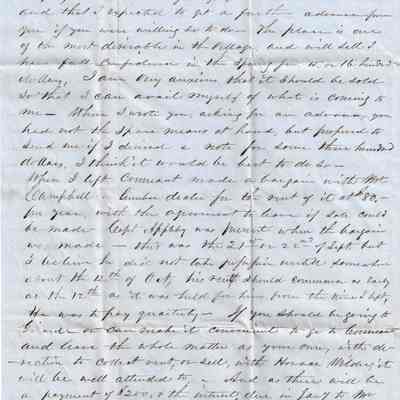 and that I expected to get a further advance from
you if you were willing so to do. The place is one
of the most desirable in the Village and will sell I
have full Confidence in the Spring for 10 or 12 hundred
dollars, I am very anxious that it should be sold
So that I can avail myself of what is coming to
me — When I wrote you, asking for an advance, you
had not the Spare means at hand, but proposed to
send me if I desired a note for some three hundred
dollars, I think it would be best to do so —
When I left Conneaut made a bargain with Mr
Campbell Lumber dealer for the rent of it at $80,-
per year, with the agreement to leave if sale could
be made Capt Appleby was present when the bargain
was made — this was the 21st or 22nd of Sept but
I believe he did not take possession until somewhere
about the 12th of Oct, his rent should commence as early
as the 12th as it was held for him from the time I left,
He was to pay quarterly — If you should be going to
or can make it convenient to go to Conneaut
and leave the whole matter as your own, with di-
rection to collect rent, or sell, with Horace Wilder, it
will be well attended to, And as there will be
a payment of $200, & the interest, due in Jany to Mr